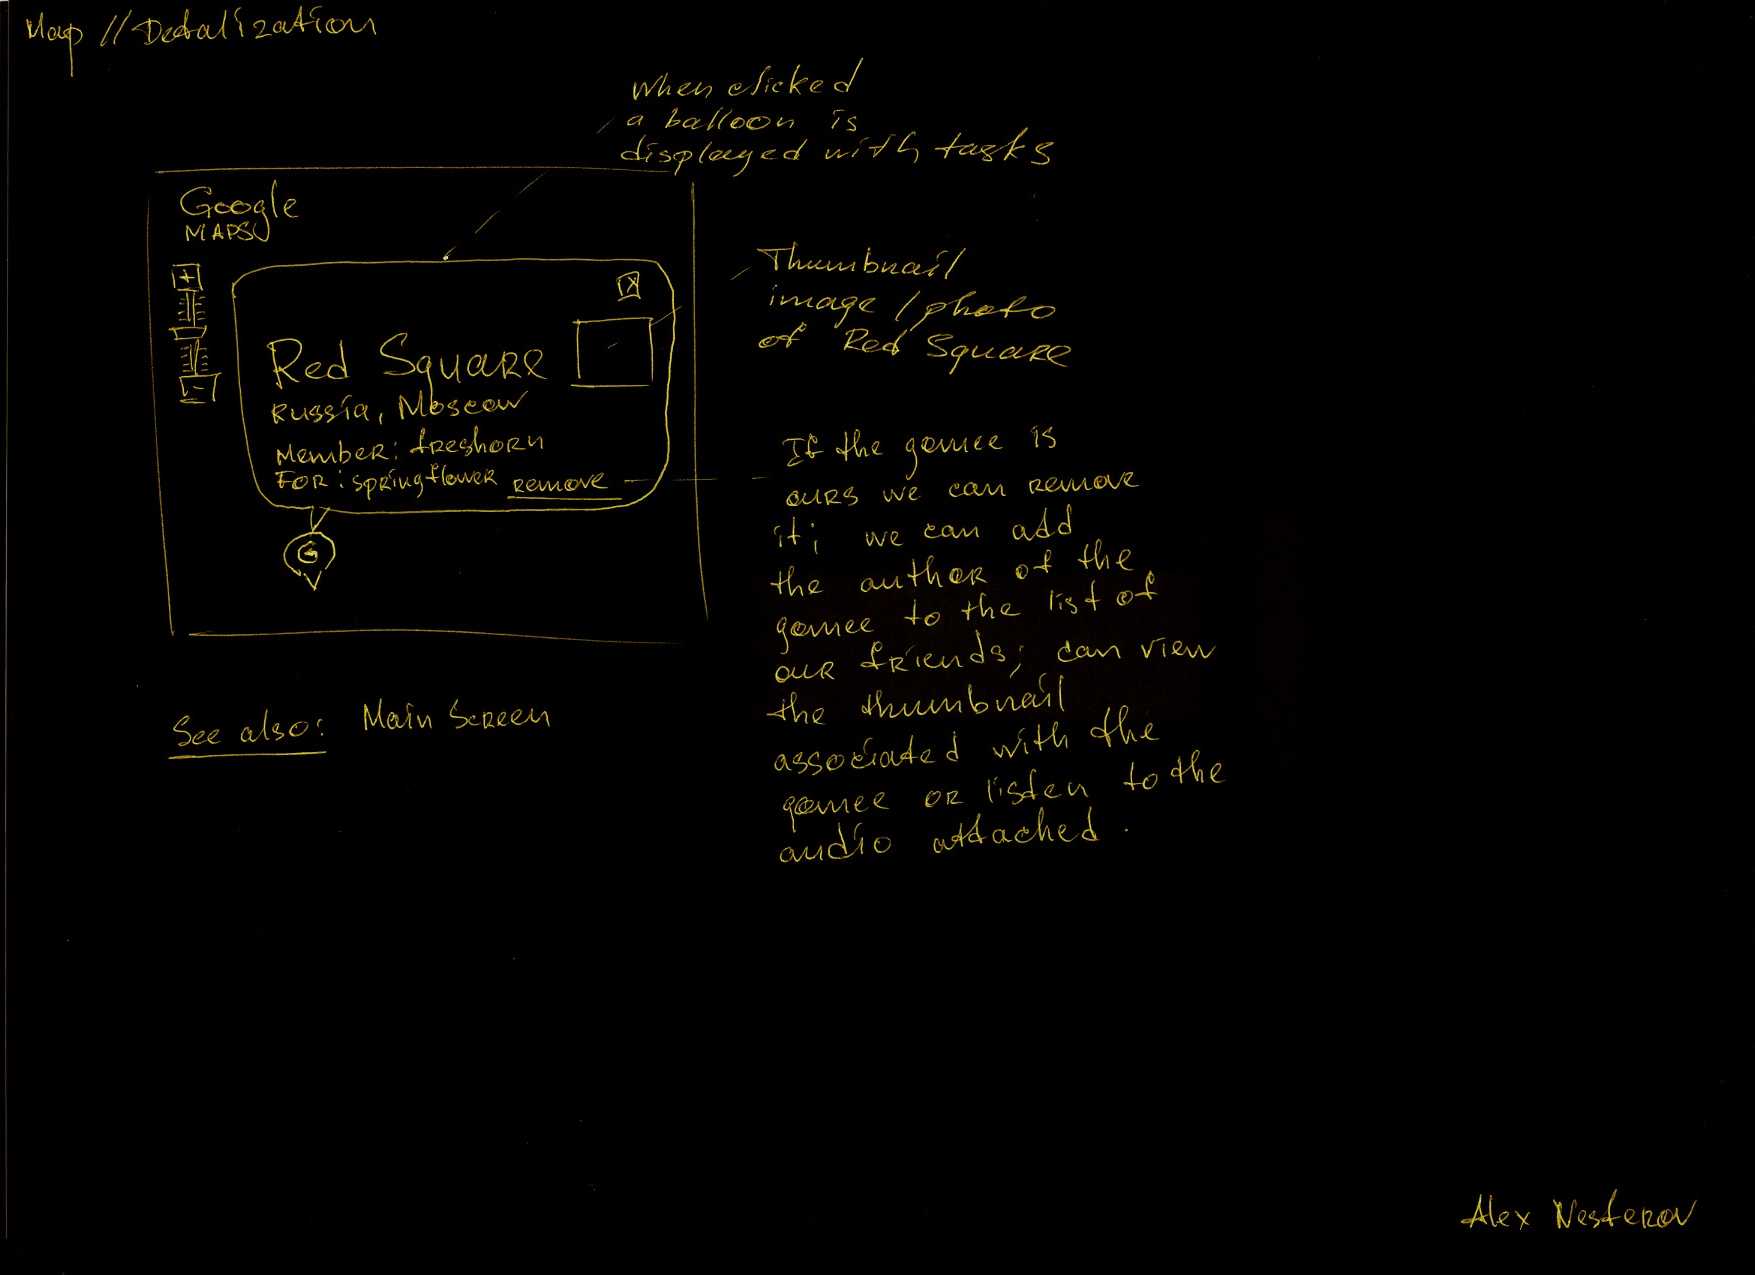 Map // Detalization
When clicked
a balloon is
displayed with tasks
Google
MAPS
+
x
Red Square
Russia, Moscow
Member: freshorn
For: springflower remove
-
G
Thumbnail
image / photo
of Red Square
If the gamee is
ours we can remove
it; we can add
the author of the
gamee to the list of
our friends; can view
the thumbnail
associated with the
gamee or listen to the
audio attached.
See also: Main Screen
Alex Nesterov